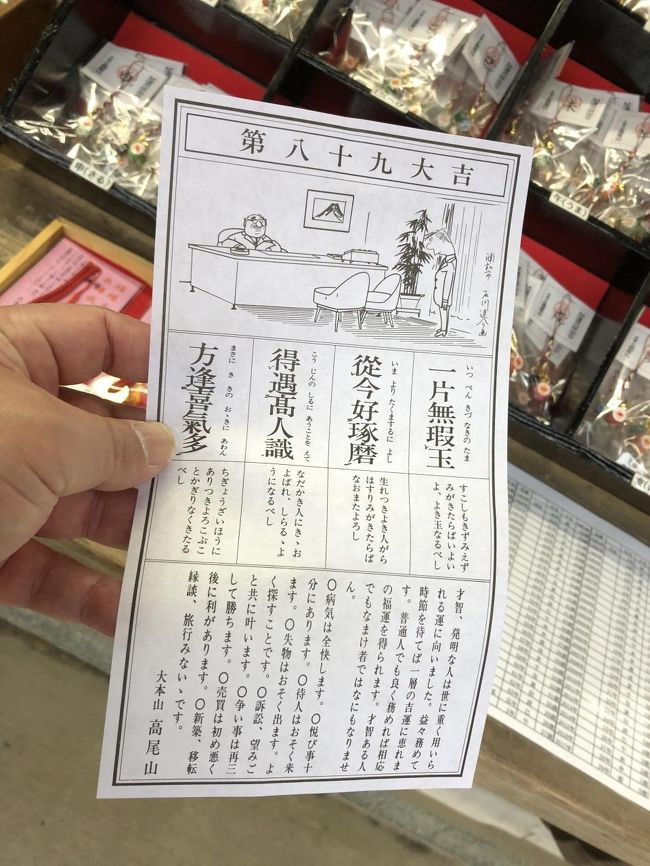 第八十九大吉
浦和市
石川進介画
いっ ぺん きづ なきの たま
一片無瑕玉
すこしもきずみえず
みがきたらばいよい
よ、よき玉なるべし
いま より たくまするに よし
從今好琢磨
生れつきよき人がら
はすりみがきたらば
なおまたよろし
こう じんの しるに あうことを えて
得遇高人識
なだかき人にきゝお
よばれ、しらるゝよ
うになるべし
まさに き きの おゝきに あわん
方逢喜氣多
ちぎょうざいほうに
ありつきよろこぶこ
とかぎりなくきたる
べし
才智、発明な人は世に重く用いら
れる運に向いました。益々務めて
時節を待てば一層の吉運に恵れま
す。普通人でも良く務めれば相応
の福運を得られます。才智ある人
でもなまけ者ではなにもなりませ
ん。
〇病気は全快します。〇悦び事十
分にあります。〇待人はおそく来
ます。〇失物はおそく出ます。よ
く探すことです。〇訴訟、望みご
と共に叶います。〇争い事は再三
して勝ちます。〇売買は初め悪く
後に利があります。〇新築、移転
縁談、旅行みないゝです。
大本山 高尾山
申(さる)
午(うま)